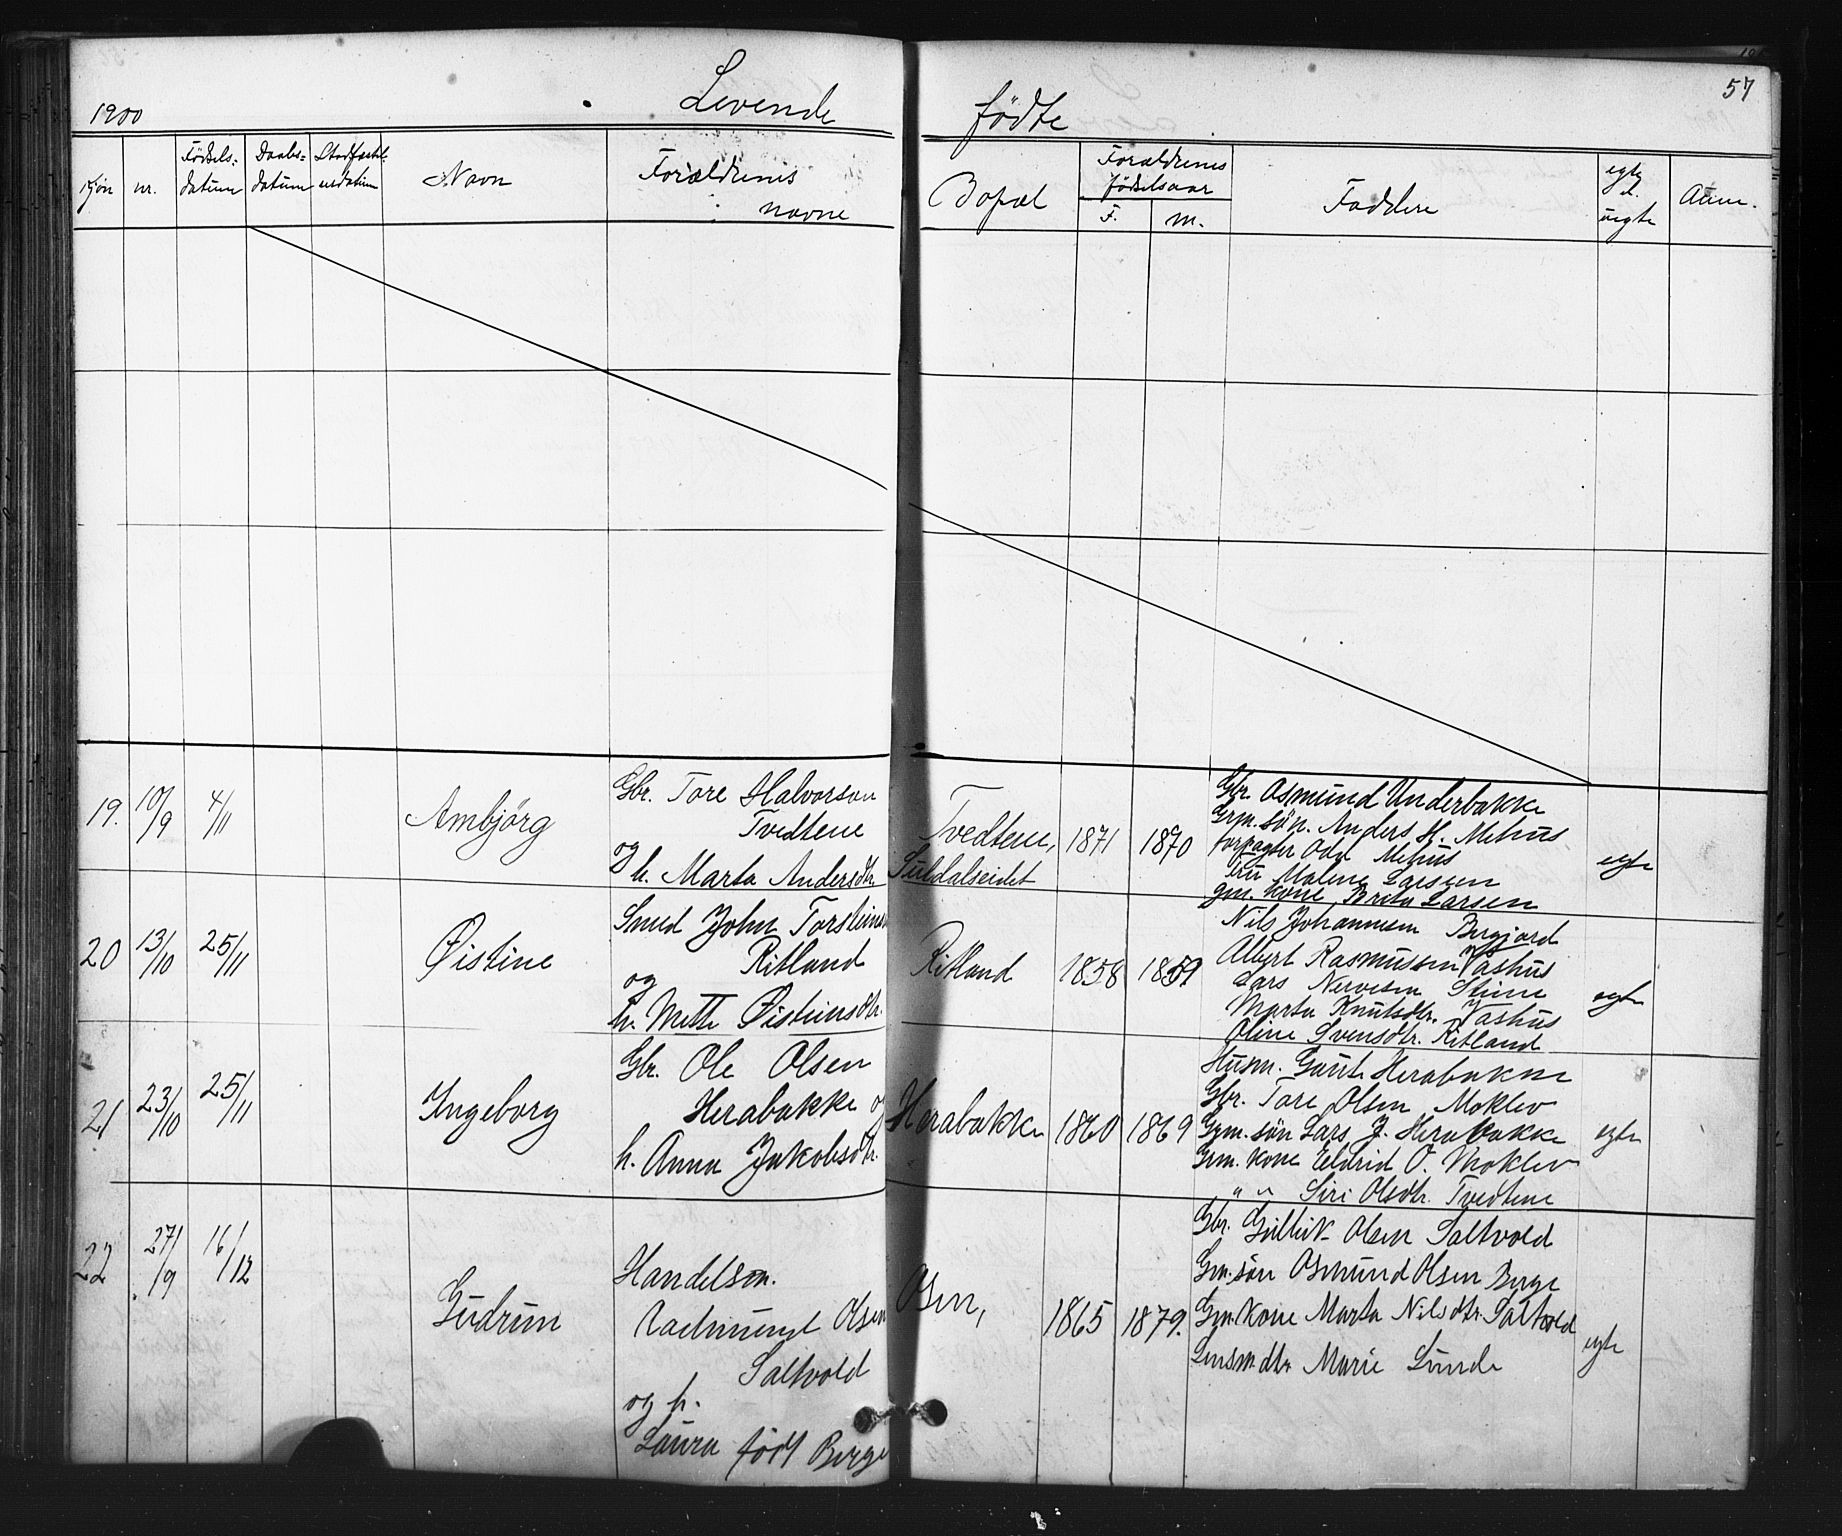 57
1900 Levende fødte
Kjøn nr. Fødsels- datum Daabs- datum Stadfæstelsesdatum Navn Forældrenes navne Bopæl Forældrenes fødselsaar F. M. Faddere egte el. uegte Anm.
19. 10/9 4/11 Ambjörg
Gbr. Tore Halvorson
Tvedtene
og
h. Marta Andersdtr.
Tvedtene,
Suldalseidet
1871 1870
Gbr. Asmund Underbakke
Grm. søn. Anders H. Mehus
forpagter Odd Mehus
Fru Malene Larsen
gm. kone Brita Larsen
egte
20 13/10 25/11 Øistine
Smed John Torsteinsen
Ritland
og
h. Mette Øisteinsdtr.
Ritland
1858 1859
Nils Johannesen Bergjord
Albert Rasmussen Vashus
Lars
Marta Knutsdtr. Vashus
Oline Svensdtr. Ritland
egte
21 23/10 25/11 Ingeborg
Gbr. Ole Olsen
Herabakke og
h. Anna Jakobsdtr.
Herabakke
1860 1869
Husm. Gaut Herabakke
Gbr. Tore Olsen Moklev
Grm. søn Lars J. Herabakke
Grm. kone Eldrid O. Moklev
" " Siri Olsdtr. Tvedtene
egte
22 27/9 16/12 Gudrun
Handelsm.
Aadmund Olsen
Saltvold
og h.
Laura født Berge
Osen,
1865 1879.
Gbr. Gullik Olsen Saltvold
Gm. søn Osmund Olsen Berge
Gm. kone Marta Nilsdtr. Saltvold
Lensm dtr Marie Lunde
egte